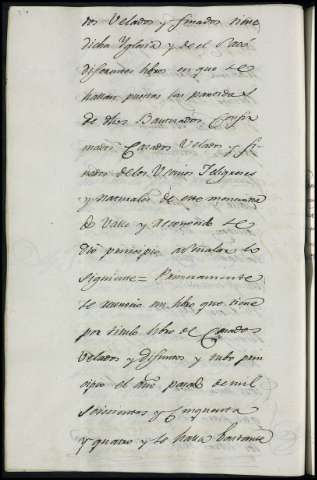 dos Velados y finados tiene
dicha Yglesia y de el Saco
diferentes libros en que se
hallan puestas las partidas
de dhos Bautizados Confir
mados Casados Velados y fi
nados de los Vecinos Feligreses
y Naturales de este mencionado
Valle y se
dio principio a señalar lo
siguiente = Primeramente
se numero un libro que tiene
por titulo libro de Casados
Velados y difuntos y tubo prin
cipio el año pasado de mil
Seiscientos y Cinquenta
y quatro y se halla bastante